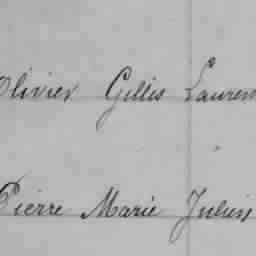 Olivier Gillis Lauren
Pierre Marie Julien